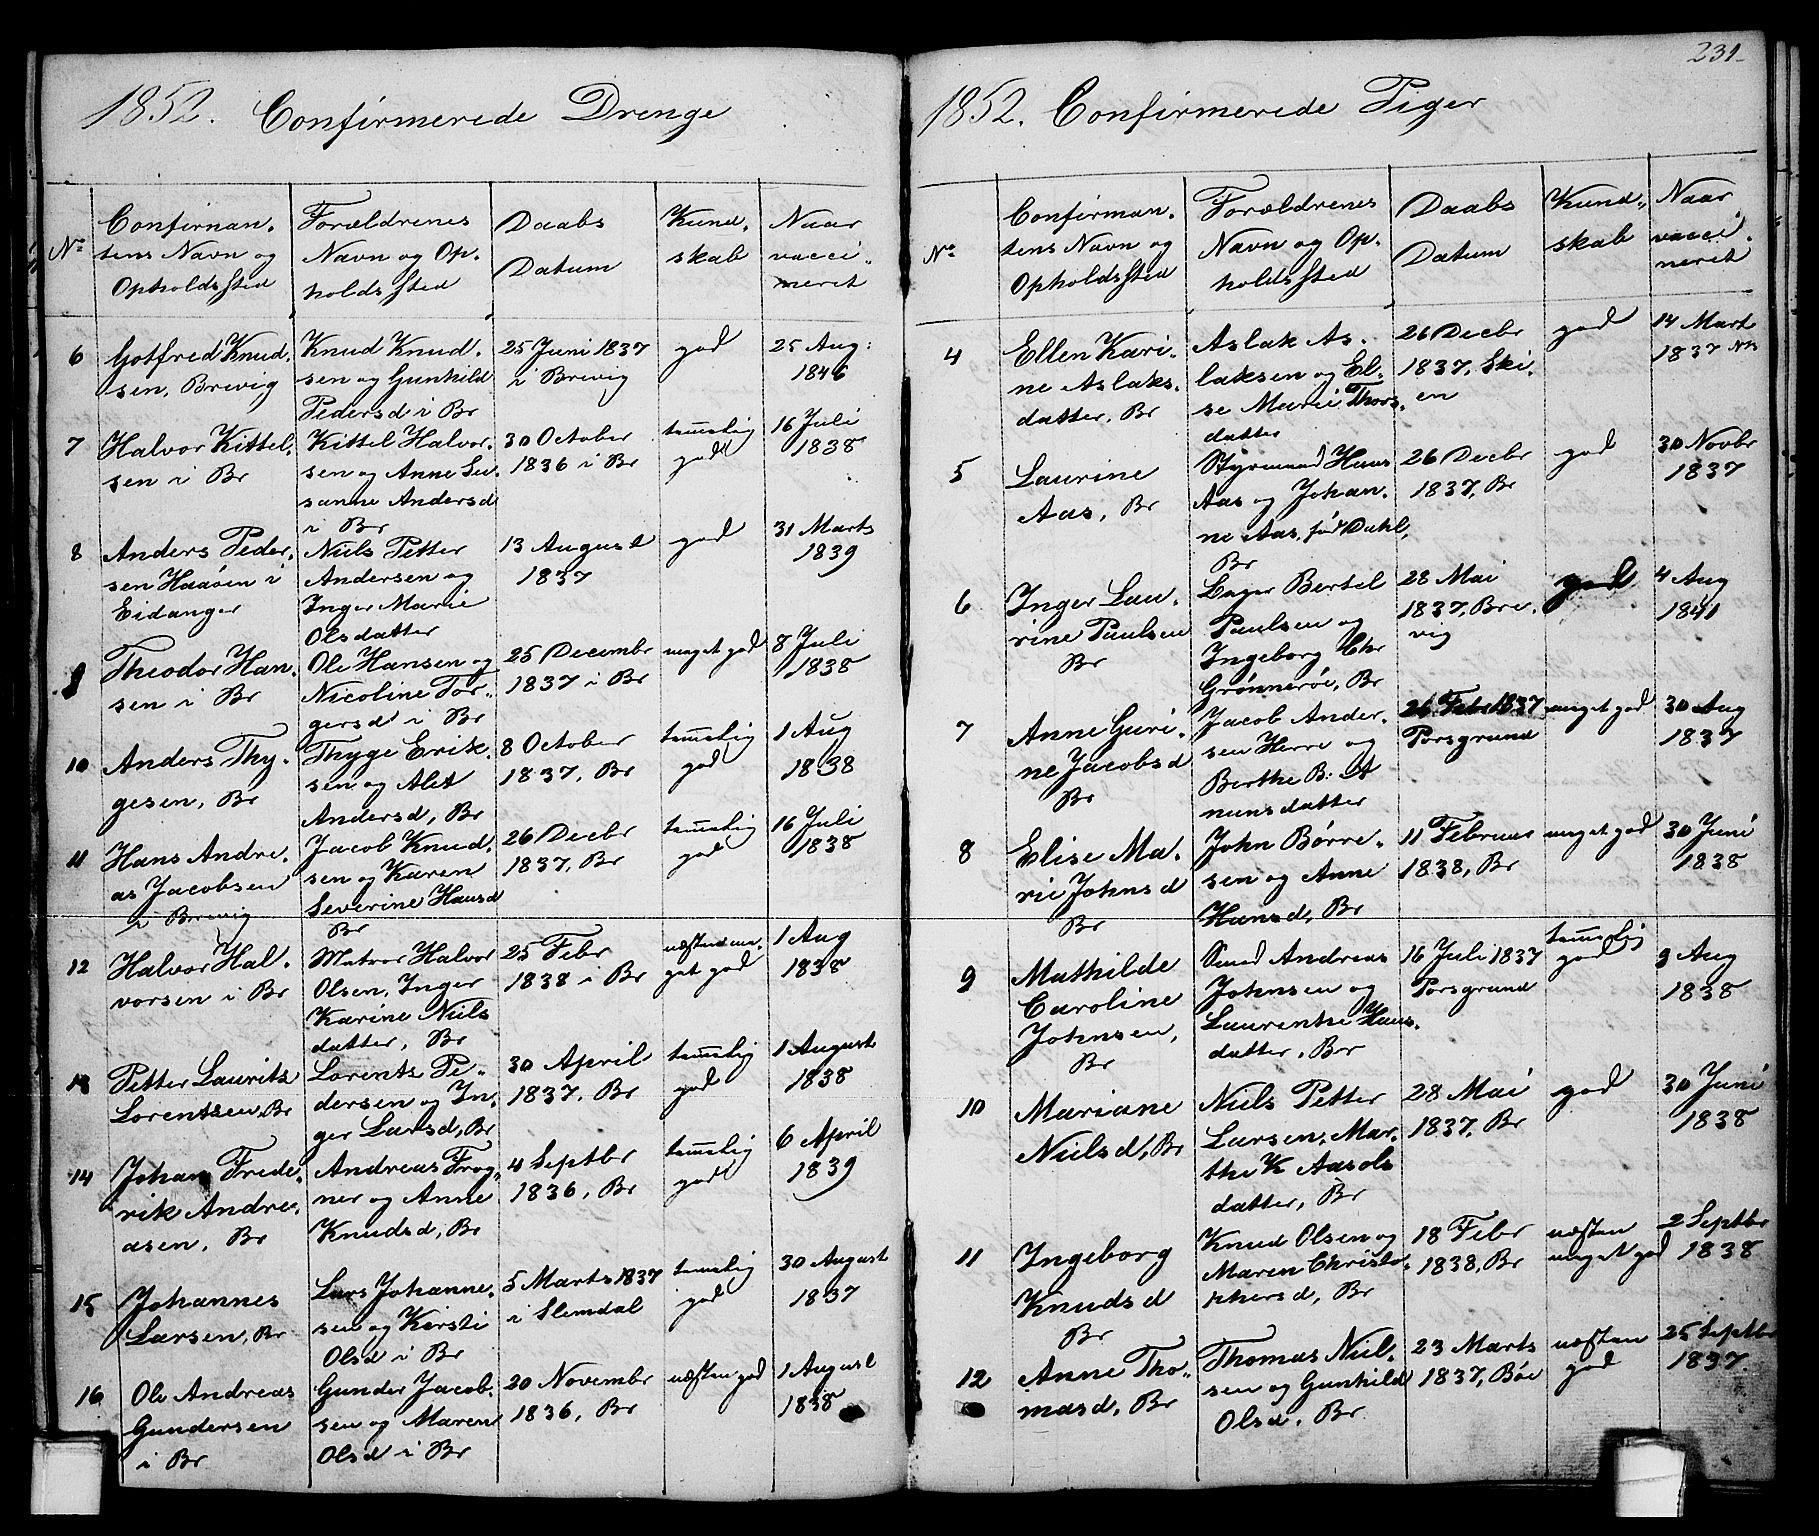 1852. Confirmerede Drenge
Nº
Confirman-
tens Navn og
Opholdssted
Forældrenes
Navn og Op-
holdssted
Daabs
Datum
Kund-
skab
Naar
vacci-
neret
6
Gotfred Knud-
sen, Brevig
Knud Knud-
sen og Gunhild
Pedersd i Br
25 Juni 1837
i Brevig
god
25 Aug:
1846
7
Halvor Kittel-
sen i Br
Kittel Halvor-
sen og Anne Su-
sanne Andersd
i Br
30 October
1836 i Br
temelig
god
16 Juli
1838
8
Anders Peder-
sen Haaøen i
Eidanger
Niels Petter
Andersen og
Inger Marie
Olsdatter
13 August
1837
god
31 Marts
1839
9
Theodor Han-
sen i Br
Ole Hansen og
Nicoline Tor-
gersd i Br
25 Decembr
1837 i Br
meget god
8 Juli
1838
10
Anders Thy-
gesen, Br
Thyge Erik-
sen og Alet
Andersd, Br
8 October
1837, Br
temelig
god
1 Aug
1838
11
Hans Andre-
as Jacobsen
i Brevig
Jacob Knud-
sen og Karen
Severine Hansd
Br
26 Decbr
1837, Br
temelig
god
16 Juli
1838
12
Halvor Hal-
vorsen i Br
Matros Halvor
Olsen, Inger
Karine Niels
datter, Br
25 Febr
1838 i Br
næsten me-
get god
1 Aug
1838
13
Petter Laurits
Lorentsen, Br
Lorents Pe-
dersen og In-
ger Larsd, Br
30 April
1837, Br
temelig
god
1 August
1838
14
Johan Frede-
rik Andre-
asen, Br
Andreas Frog-
ner og Anne
Knudsd, Br
4 Septbr
1836, Br
temelig
god
6 April
1839
15
Johannes
Larsen, Br
Lars Johanne-
sen og Kirsti
Olsd i Br
5 Marts 1837
i Slemdal
temelig
god
30 August
1837
16
Ole Andreas
Gundersen
i Br
Gunder Jacob-
sen og Maren
Olsd i Br
20 Novembr
1836, Br
næsten god
1 August
1838
231
1852. Confirmerede Piger
Nº
Confirman-
tens Navn og
Opholdssted
Forældrenes
Navn og Op-
holdssted
Daabs
Datum
Kund-
skab
Naar
vacci-
neret
4
Ellen Kari-
ne Aslaks-
datter, Br
Aslak As-
laksen og El-
se Marie Thors-
datter
26 Decbr
1837, Ski-
en
god
14 Mart
1837
5
Laurine
Aas, Br
Styrmand Hans
Aas og Johan-
ne Aas, født Dahl,
Br
26 Decbr
1837, Br
god
30 Novbr
1837
6
Inger Lau-
rine Paulsen
Br
Bertel
Paulsen og
Ingeborg Chr
Grønnerøe, Br
28 Mai
1837, Bre-
vig
god
4 Aug
1841
7
Anne Guri-
ne Jacobsd
Br
Jacob Ander-
sen Herre og
Berthe B:
munsdatter
26 Febr 1837
Porsgrund
meget god
30 Aug
1837
8
Elise Ma-
rie Johnsd
Br
John Børre-
sen og Anne
Hansd, Br
11 Februar
1838, Br
meget god
30 Juni
1838
9
Mathilde
Caroline
Johnsen,
Br
Smed Andreas
Johnsen og
Laurenthe Hans-
datter, Br
16 Juli 1837
Porsgrund
temelig
god
9 Aug
1838
10
Mariane
Nielsd, Br
Niels Petter
Larsen, Mar-
the K Aasols
datter, Br
28 Mai
1837, Br
god
30 Juni
1838
11
Ingeborg
Knudsd
Br
Knud Olsen og
Maren Christo-
phersd, Br
18 Febr
1838, Br
næsten
meget god
2 Septbr
1838
12
Anne Tho-
masd, Br
Thomas Niel-
sen og Gunhild
Olsd, Br
23 Marts
1837, Bøe
næsten
god
25 Septbr
1837